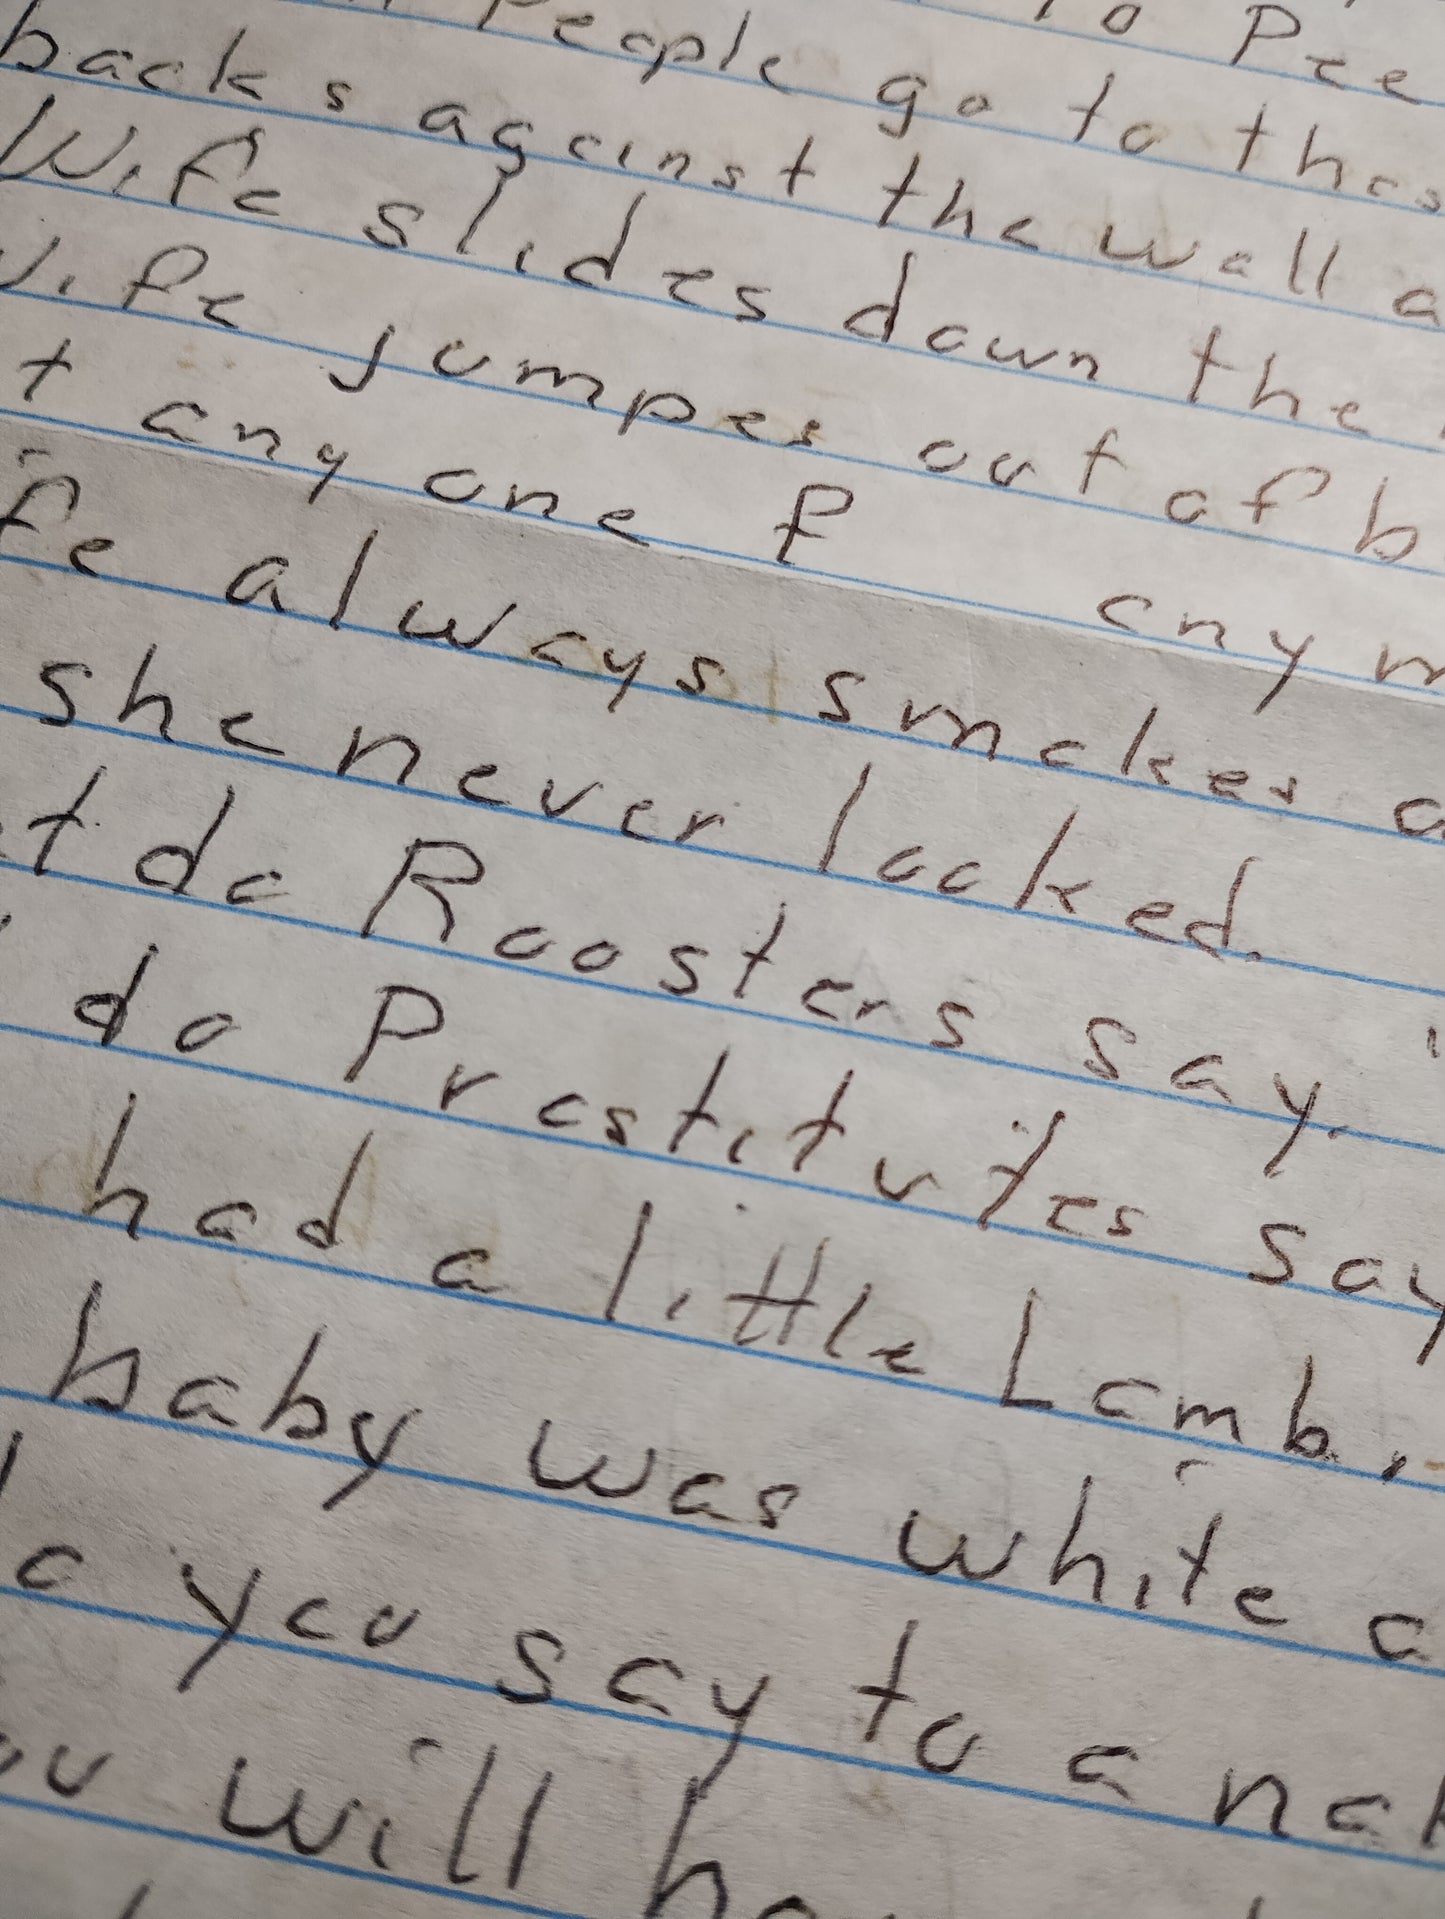 to Pee
People go to thes
backs against the wall a
Wife slides down the
wife jumpes out of b
t any one F any m
fe always smokes a
she never looked.
t do Roosters say.
do Prostitutes say
had a little Lamb,
baby was white a
o you say to a nak
ou will ha